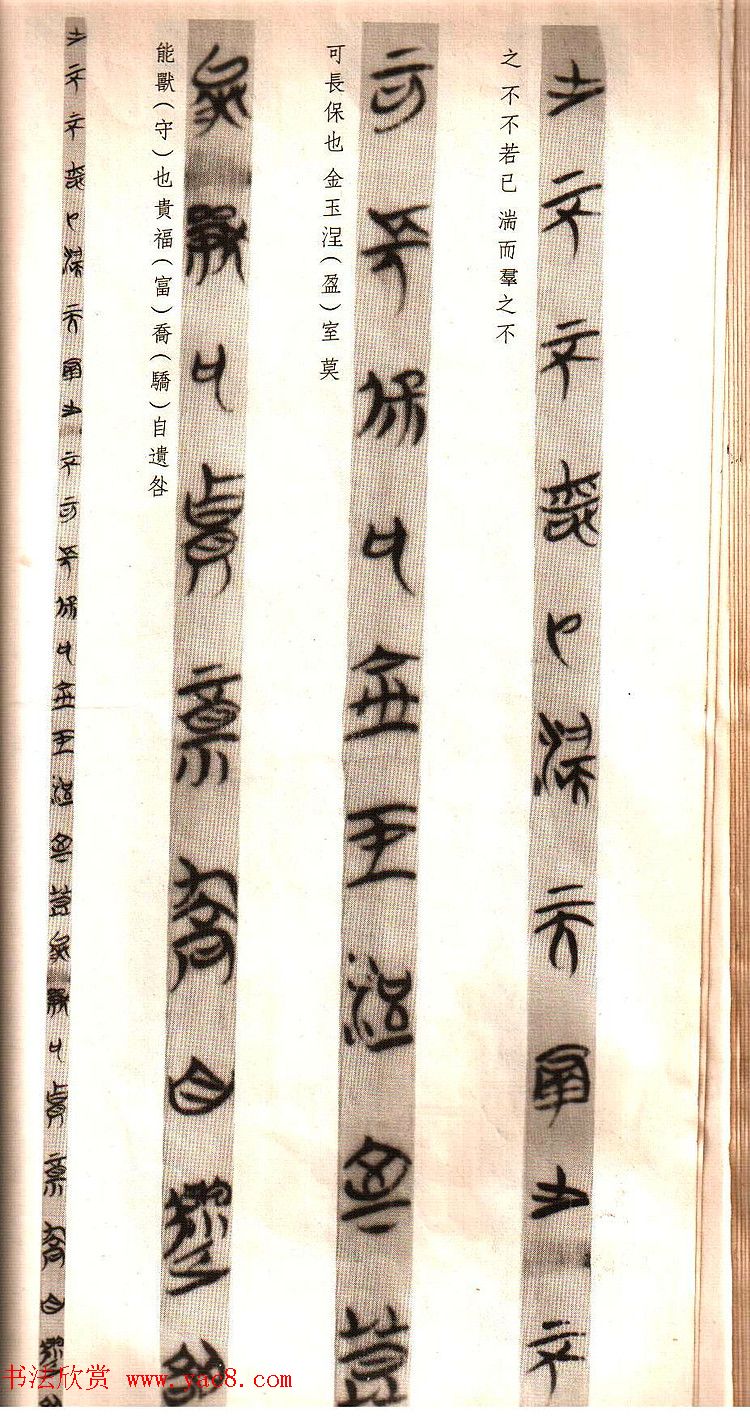 之 不不若已 湍而羣之不
可長保也 金玉涅(盈)室 莫
能獸(守)也貴福(富)喬(驕)自遺咎
书法欣赏 www.yac8.com